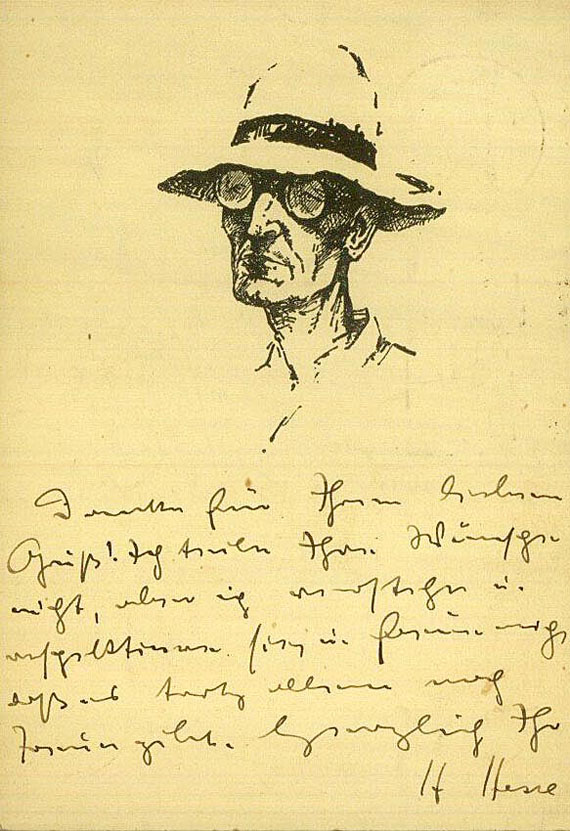 Danke für Ihren lieben
Gruß! Ich teile Ihre Wünsche
nicht, aber ich verstehe u.
respektiere sie, u. freue mich
daß es trotz allem noch
gibt. Herzlich Ihr
H Hesse